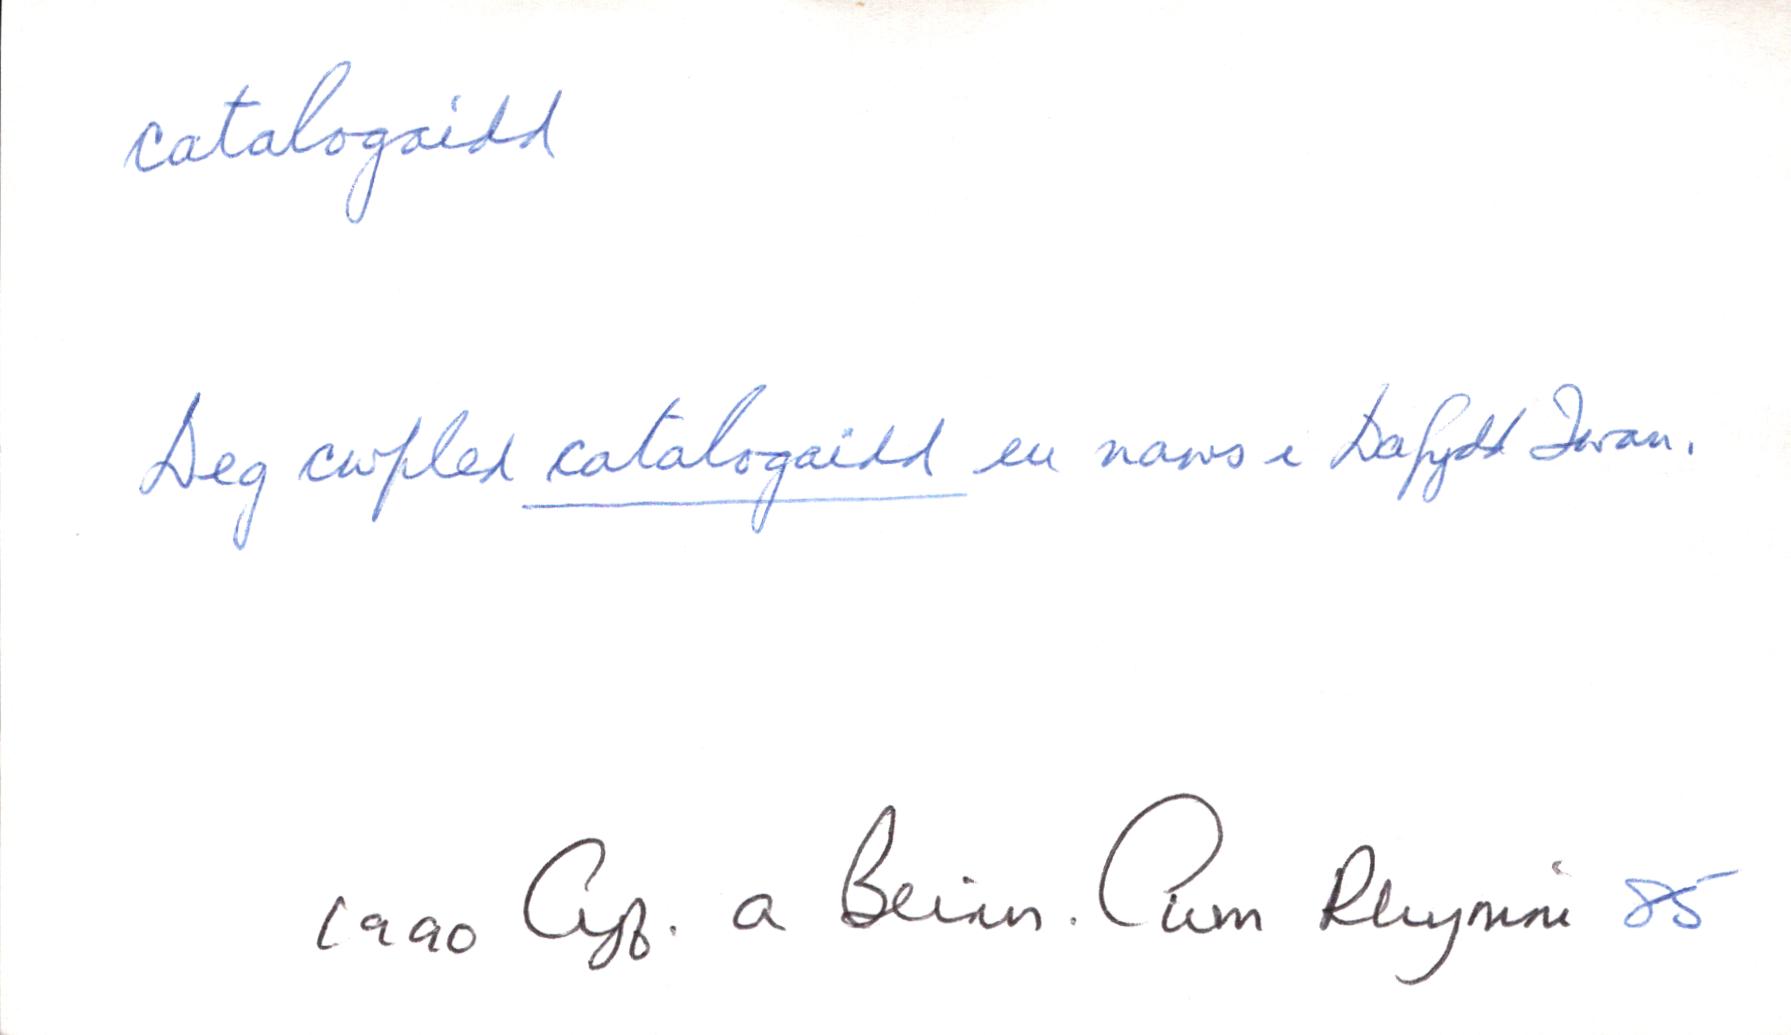 catalogaidd
Deg cwpled catalogaidd eu naws i Dafydd Iwan.
1990 Cyf. a Beirn. Cwm Rhymni 85